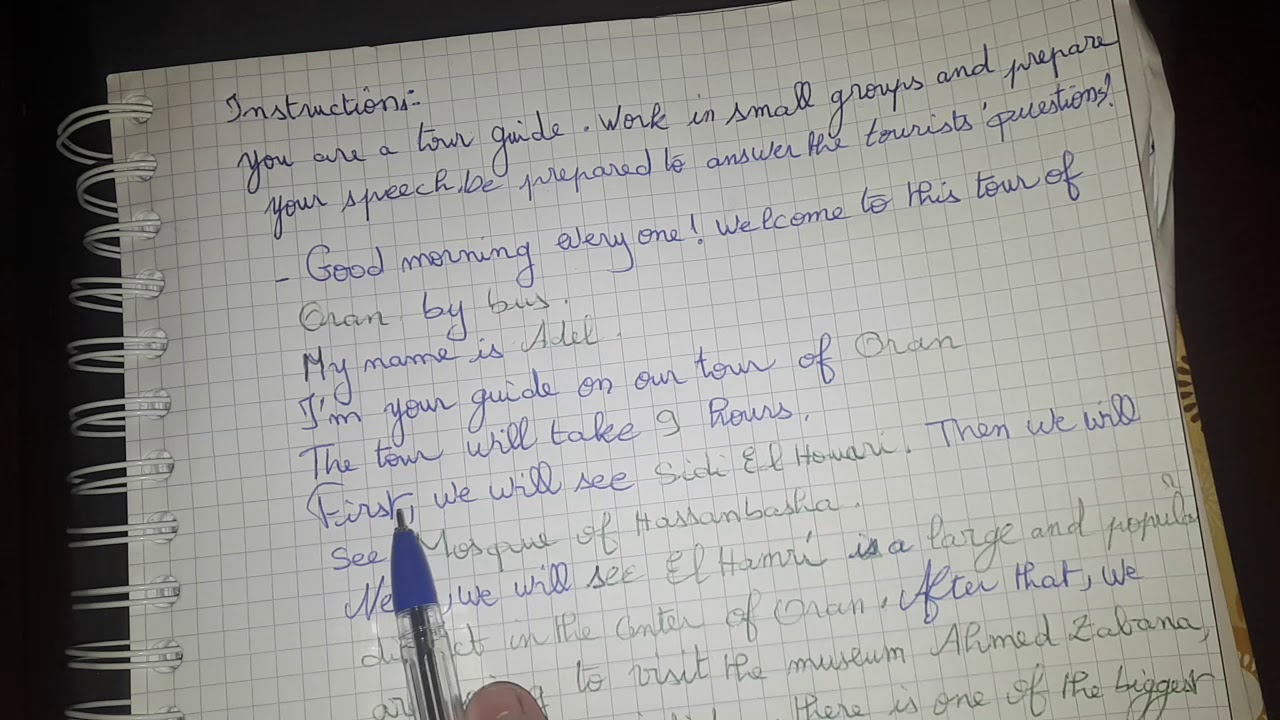 Instructions:-
you are a tour guide. Work in small groups and prepare
your speech, be prepared to answer the tourists' questions!
- Good morning everyone! Welcome to this tour of
Oran by bus.
My name is Adel.
I'm your guide on our tour of Oran
The tour will take 9 hours.
First, we will see Sidi El Houari. Then we will
see Mosque of Hassanbasha.
, we will see El Hamri is a large and popula
in the center of Oran. After that, we
to visit the museum Ahmed Zabana,
there is one of the biggest